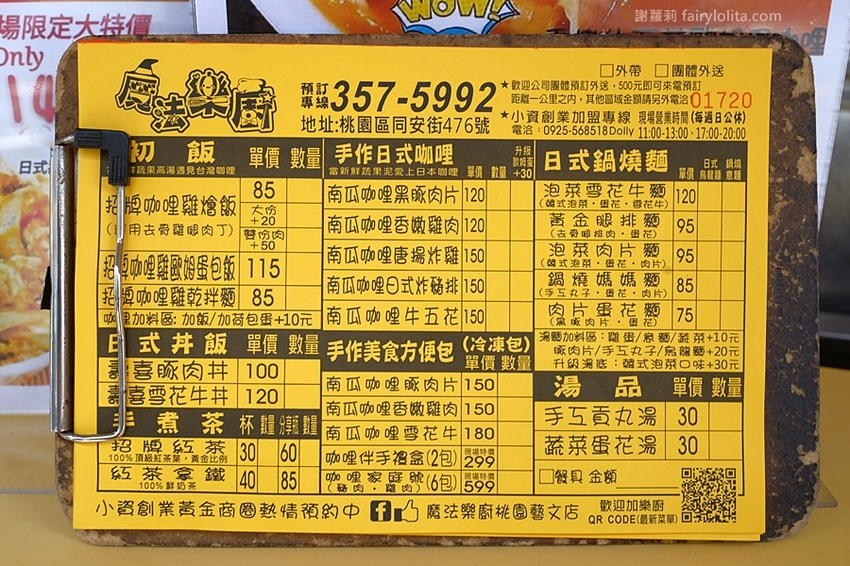 謝蘿莉 fairylolita.com
場限定大特價
Only
WOW!
魔法樂廚
預訂專線 357-5992
地址:桃園區同安街476號
□外帶 □團體外送
★歡迎公司團體預訂外送,500元即可來電預訂
距離一公里之內,其他區域金額請另外電洽
01720
★小資創業加盟專線 現場營業時間(每週日公休)
電洽:0925-568518Dolly 11:00-13:00·17:00-20:00
初飯 單價 數量
鮮蔬果高湯遇見台灣咖哩
招牌咖哩雞燴飯 85
(用去骨雞腿肉丁) 大份+20
雙份肉+50
招牌咖哩雞歐姆蛋包飯 115
招牌咖哩雞乾拌麵 85
咖哩加料區:加飯/加荷包蛋+10元
日式丼飯 單價 數量
壽喜豚肉丼 100
壽喜雪花牛丼 120
手煮茶 杯 數量 分享瓶 數量
招牌紅茶 30 60
100%頂級紅茶葉,黃金比例
紅茶拿鐵 40 85
100%鮮奶茶
手作日式咖哩 單價 數量 升級歐姆蛋+30
當新鮮蔬果泥愛上日本咖哩
南瓜咖哩黑豚肉片 120
南瓜咖哩香嫩雞肉 120
南瓜咖哩唐揚炸雞 150
南瓜咖哩日式炸豬排 150
南瓜咖哩牛五花 150
手作美食方便包 (冷凍包)
單價 數量
南瓜咖哩豚肉片 150
南瓜咖哩香嫩雞肉 150
南瓜咖哩雪花牛 180
咖哩伴手禮盒(2包) 現場特價 299
咖哩家庭號(6包) 現場特價 599
(豬肉·雞肉)
日式鍋燒麵 單價 日式烏龍麵 鍋燒意麵
泡菜雪花牛麵 120
(韓式泡菜·蛋花·雪花牛)
黃金腿排麵 95
(去骨腿排肉·蛋花)
泡菜肉片麵 95
(韓式泡菜·蛋花·肉片)
鍋燒媽媽麵 85
(手工丸子·蛋花·肉片)
肉片蛋花麵 75
(黑豚肉片·蛋花)
湯麵加料區:雞蛋/意麵/蔬菜+10元
豚肉片/手工丸子/烏龍麵+20元
升級湯底:韓式泡菜口味+30元
湯品 單價 數量
手工貢丸湯 30
蔬菜蛋花湯 30
□餐具 金額
小資創業黃金商圈熱情預約中 魔法樂廚桃園藝文店
歡迎加樂廚
QR CODE(最新菜單)